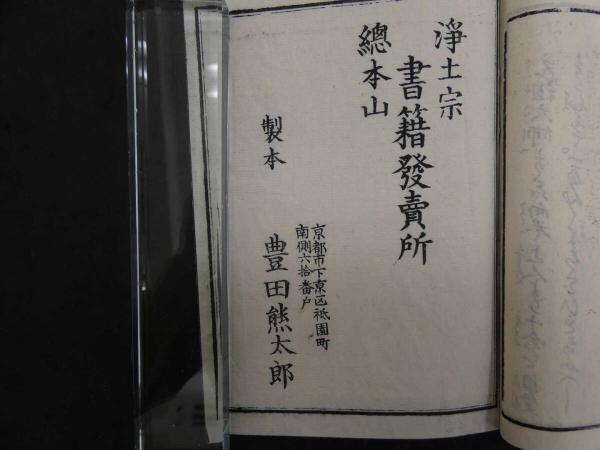 淨土宗
總本山
書籍發賣所
製本
京都市下京区祇園町
南側六拾番戸
豊田熊太郎